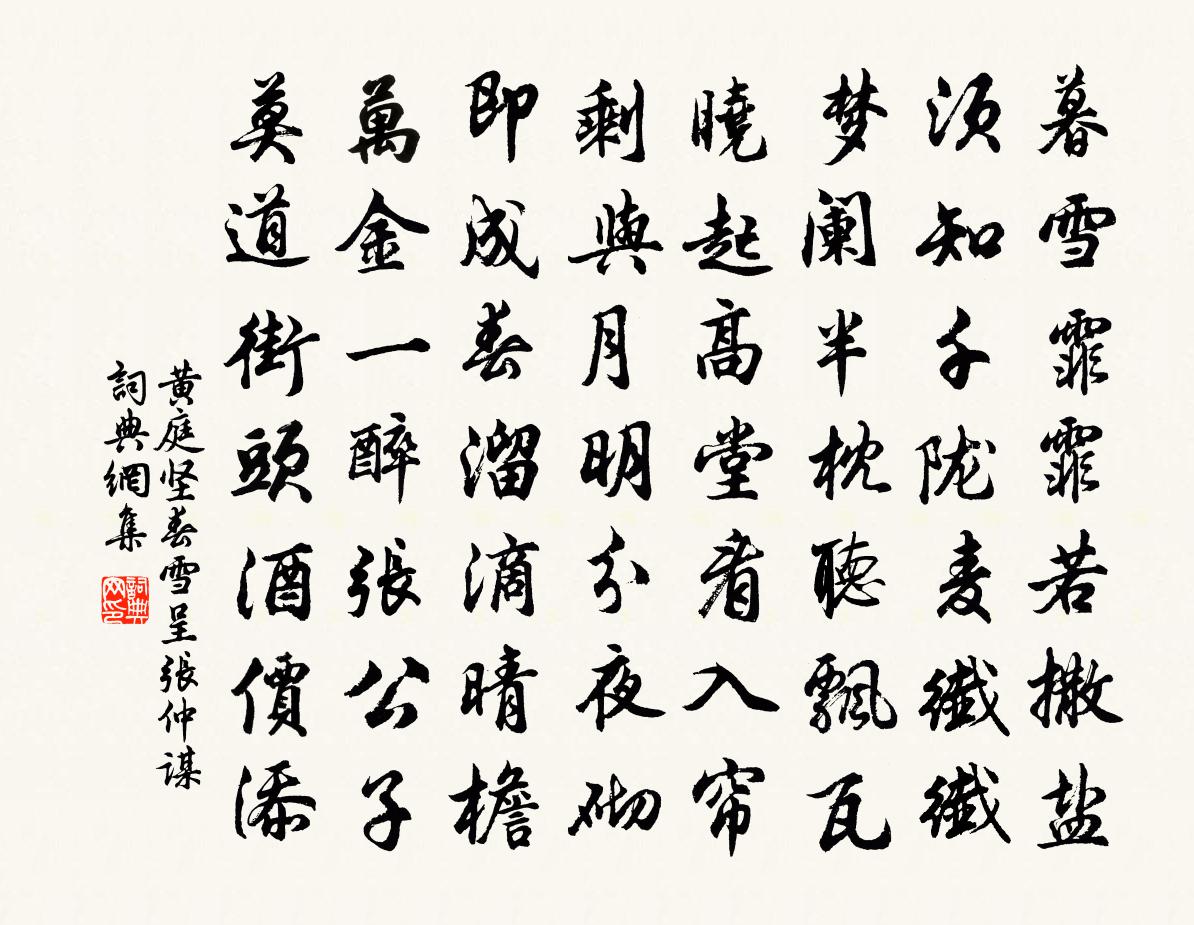 暮雪霏霏若撒盐
须知千陇麦纖纖
梦阑半枕聽飄瓦
曉起高堂看入帘
剩與月明分夜砌
即成春溜滴晴檐
萬金一醉張公子
莫道街頭酒價添
黄庭坚春雪呈張仲謀
詞典網集
詞典网印